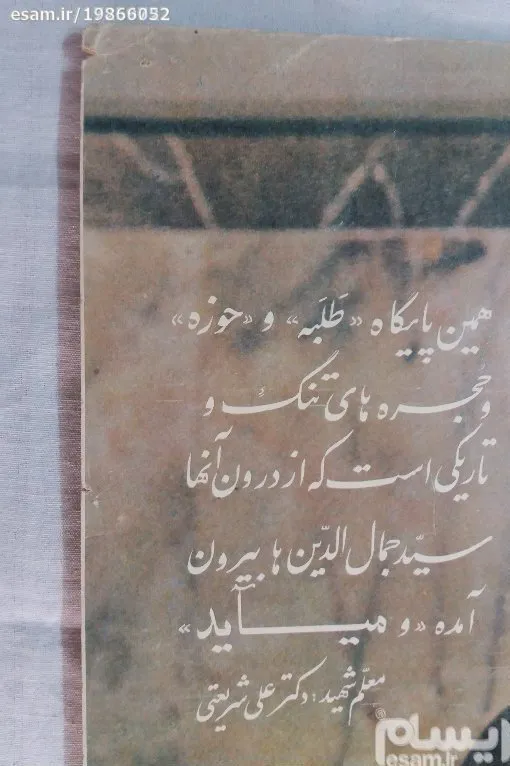 esam.ir/19866052
همین پایگاه «طَلَبه» و «حوزه»
و حُجره های تنگ و
تاریکی است که از درون آنها
سیّد جمال الدّین ها بیرون
آمده «و میآید»
معلّم شهید: دکتر علی شریعتی
ایسام
esam.ir